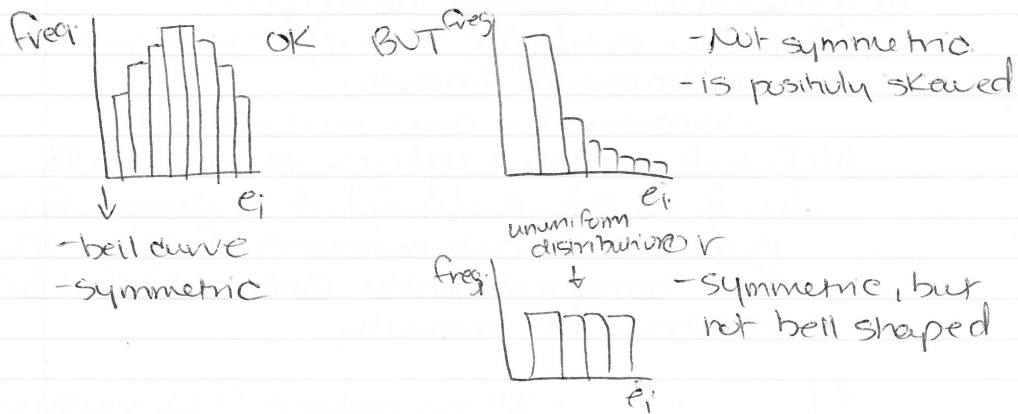 freq.
OK
e_i
-bell curve
-symmetric
BUT
freq.
-Not symmetric
-is positivly skewed
e_i
or
ununiform
distribution
freq.
-symmetric, but
not bell shaped
e_i